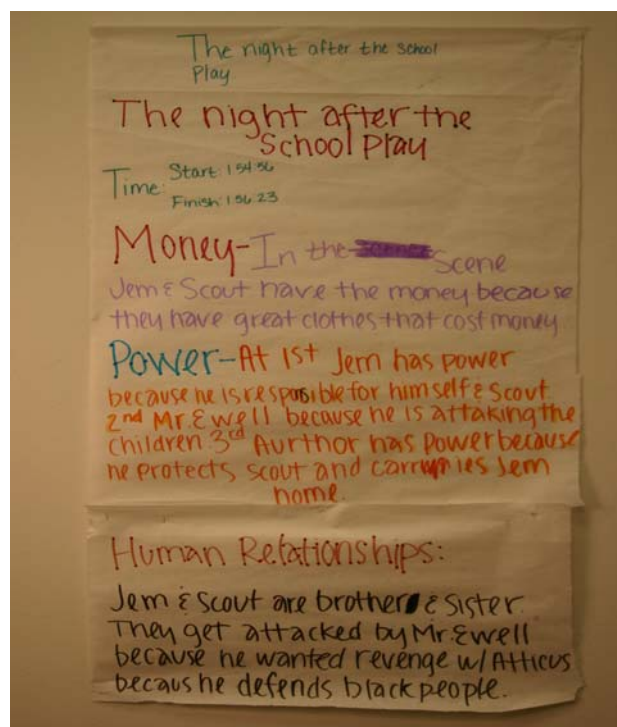 The night after the school
Play
The night after the
School Play
Time: Start: 1:54:56
Finish: 1:56:23
Money-In the Scene
Jem & Scout have the money because
they have great clothes that cost money
Power-At 1st Jem has power
because he is responsible for himself & Scout
2nd Mr. Ewell because he is attaking the
children. 3rd Aurthor has power because
he protects scout and carries Jem
home.
Human Relationships:
Jem & Scout are brother & sister.
They get attacked by Mr. Ewell
because he wanted revenge w/ Atticus
becaus he defends black people.